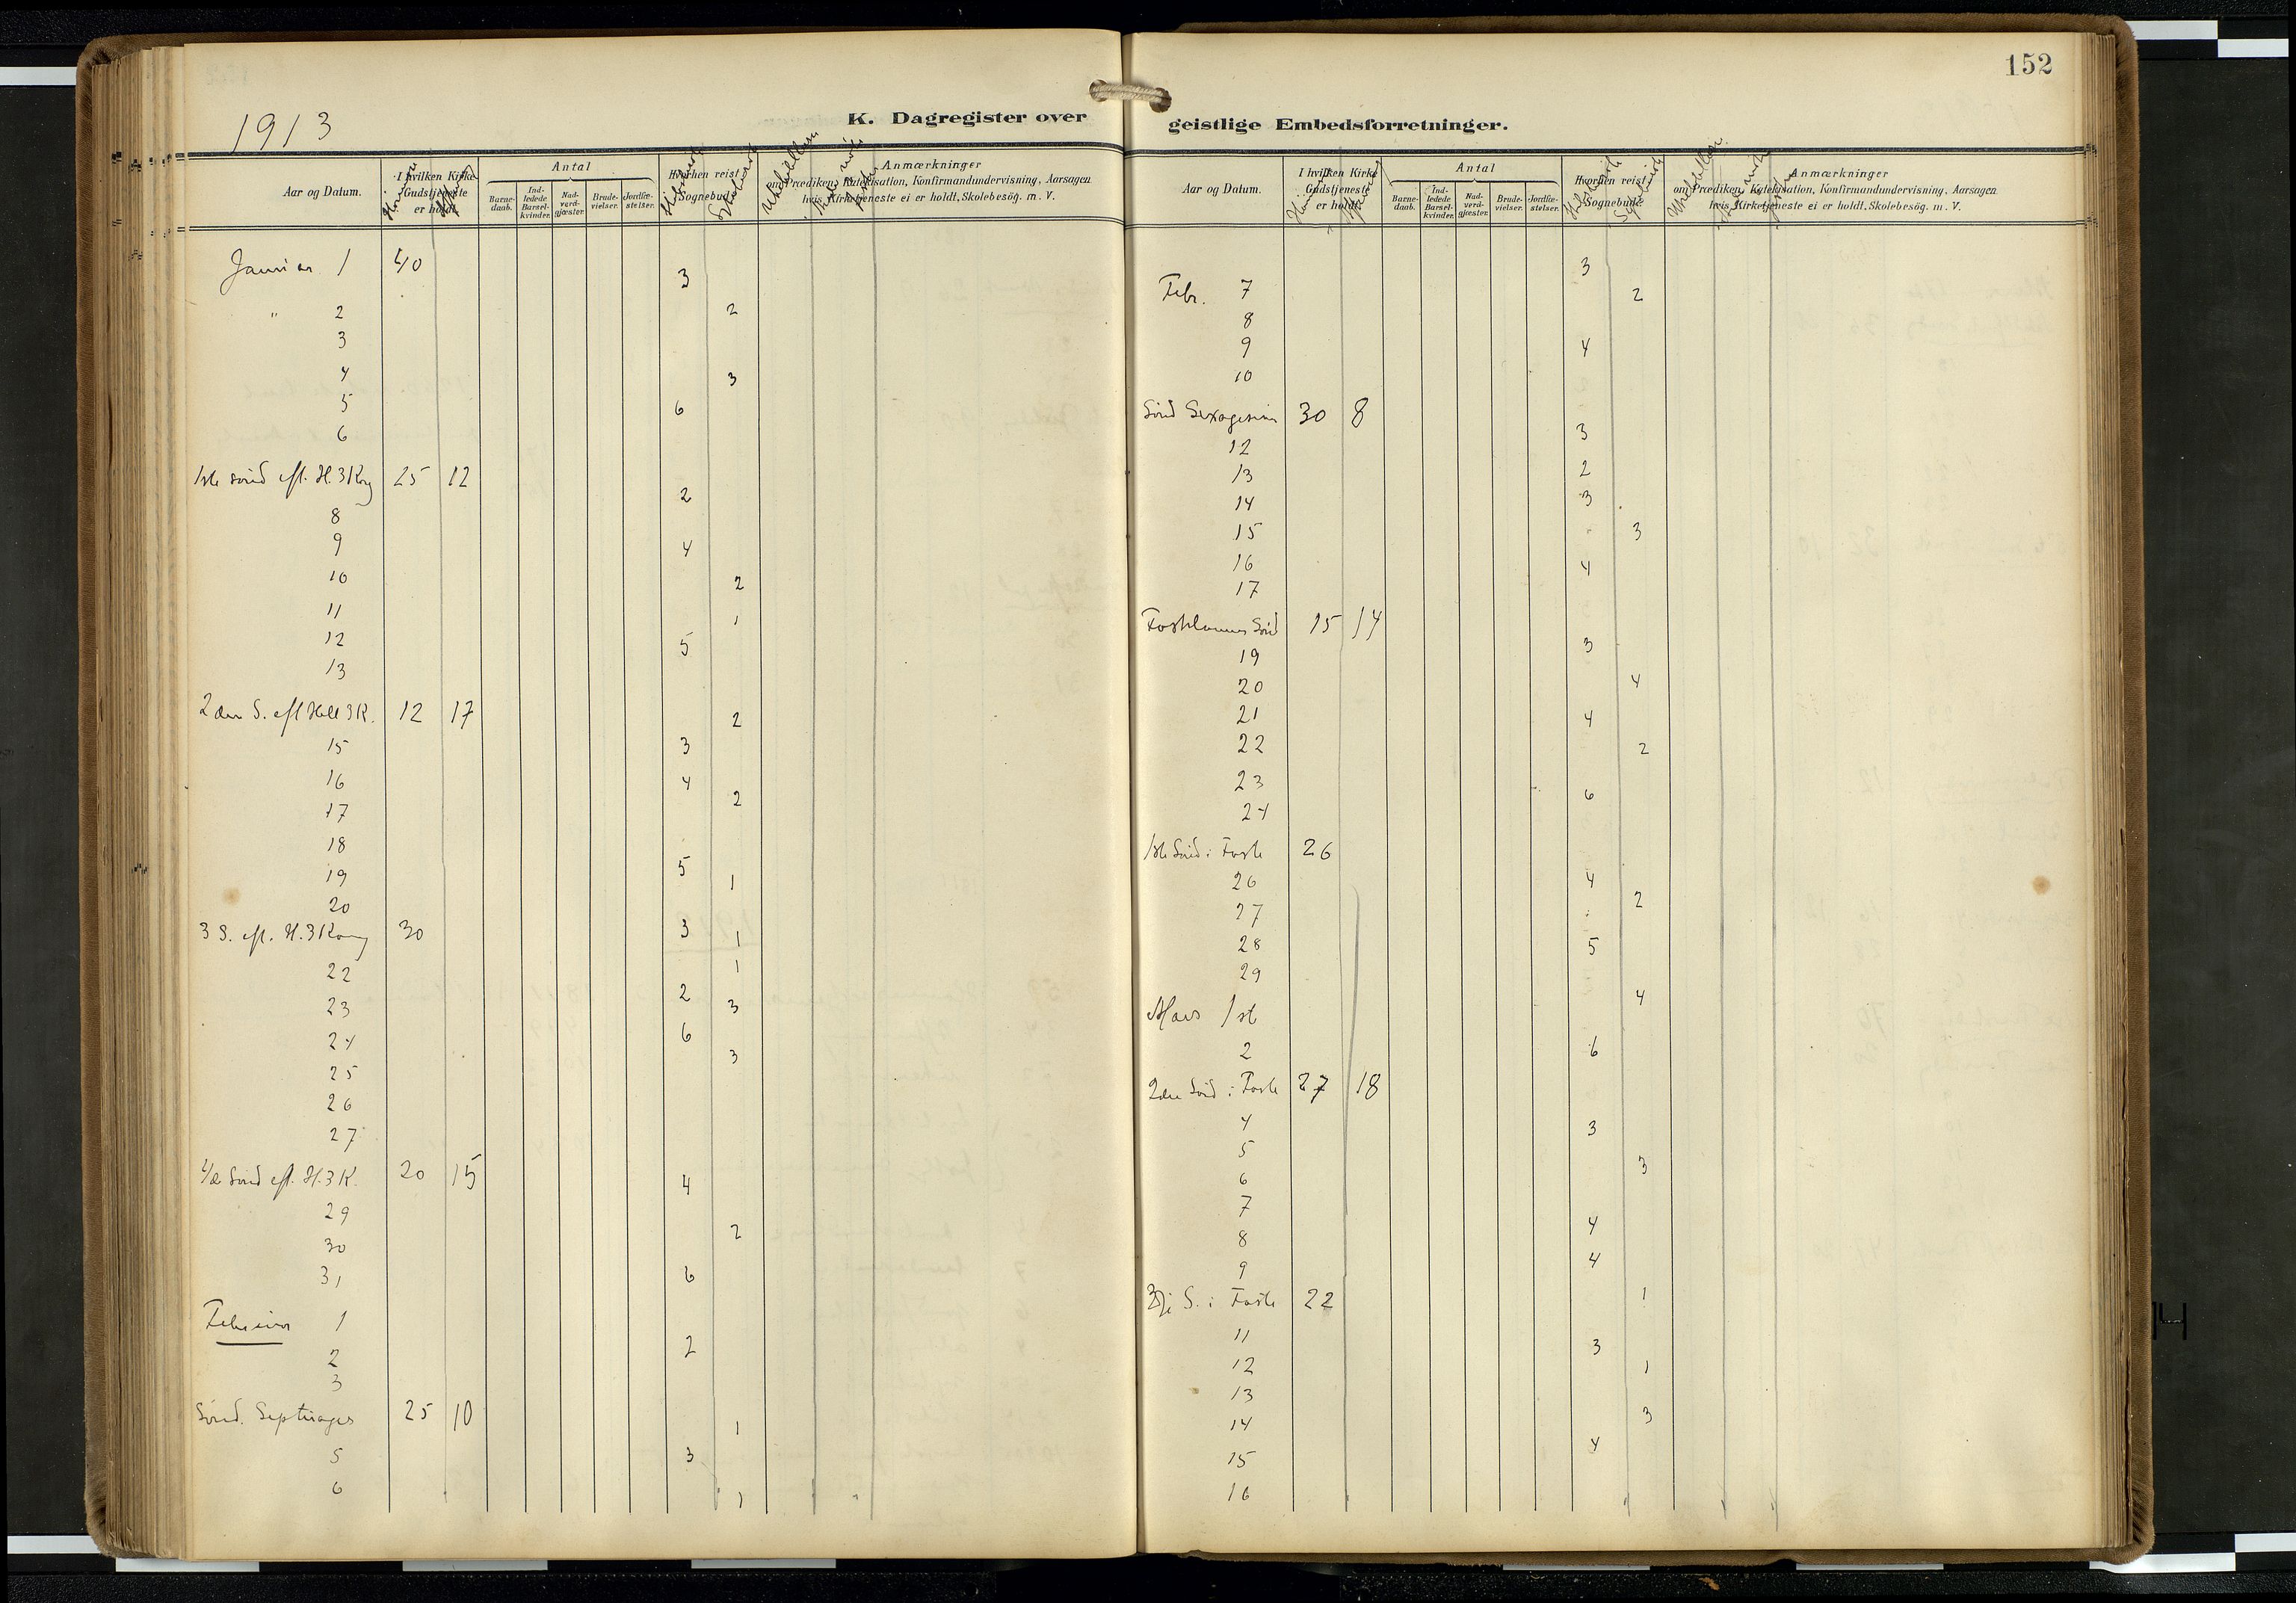 152
K. Dagregister over geistlige Embedsforretninger.
1913
Aar og Datum. I hvilken Kirke Gudstjeneste er holdt. Antal Barne-daab. Ind-ledede Barsel-kvinder. Nad-verd-gjæster. Brude-vielser. Jordfæ-stelser. Hvorhen reist i Sognebud. Anmærkninger om Prædiken, Katekisation, Konfirmandundervisning, Aarsagen hvis Kirketjeneste ei er holdt, Skolebesøg. m. V.
Januar 1 40
3
" 2 2
3
4 3
5 6
6
1ste sønd eft. H. 3 Kong 25 12
2
8
9 4
10 2
11 1
12 5
13
2den S. eft Hell 3 K. 12 17 2
15 3
16 4
17 2
18
19 5 1
20
3 S. eft. H. 3 Kong 30 3 1
22 1
23 2 3
24 6
25 3
26
27
4de Sønd eft. H. 3 K. 20 15 4
29
30 2
31 6
Februar 1
2 2
3
Sønd. Septuages 25 10
1
5 3
6 1
Aar og Datum. I hvilken Kirke Gudstjeneste er holdt. Antal Barne-daab. Ind-ledede Barsel-kvinder. Nad-verd-gjæster. Brude-vielser. Jordfæ-stelser. Hvorhen reist i Sognebud. Anmærkninger om Prædiken, Katekisation, Konfirmandundervisning, Aarsagen hvis Kirketjeneste ei er holdt, Skolebesøg. m. V.
3
Febr. 7 2
8
9 4
10
Sønd Sexagesima 30 8
3
12
13 2
14 3
15 3
16 4
17
Fastelavns Sønd 15 14
3
19
20 4
21 4
22 2
23 6
24
1ste Sønd i Faste 26
26 4
27 2
28 5
29
4
Mars 1st
2 6
2den Sønd i Faste 27 18
4 3
5
6 3
7
8 4
9 4
3dje S. i Faste 22 1
11 3
12 1
13
14 3
15 4
16